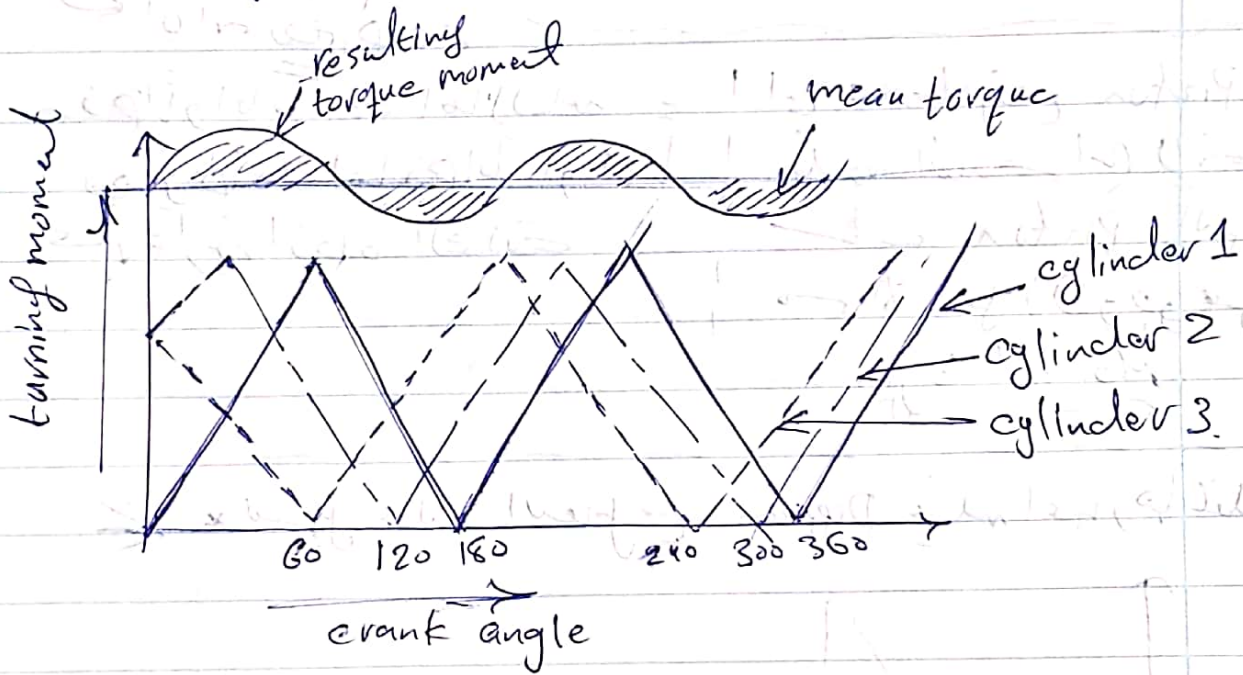 resulting
torque moment
mean torque
turning moment
cylinder 1
cylinder 2
cylinder 3.
60 120 180 240 300 360
crank angle